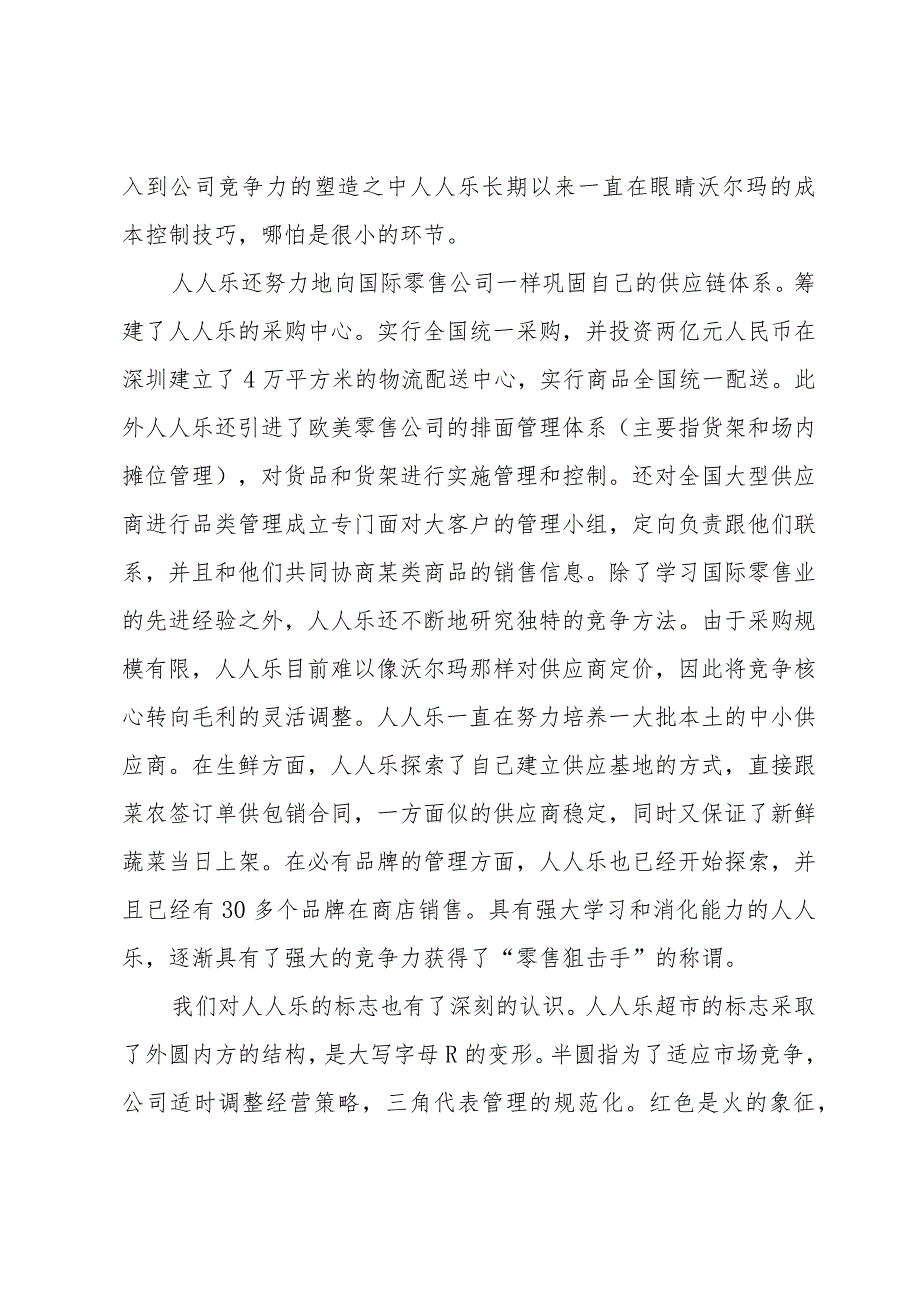 入到公司竞争力的塑造之中人人乐长期以来一直在眼睛沃尔玛的成
本控制技巧，哪怕是很小的环节。
人人乐还努力地向国际零售公司一样巩固自己的供应链体系。筹
建了人人乐的采购中心。实行全国统一采购，并投资两亿元人民币在
深圳建立了 4 万平方米的物流配送中心，实行商品全国统一配送。此
外人人乐还引进了欧美零售公司的排面管理体系（主要指货架和场内
摊位管理），对货品和货架进行实施管理和控制。还对全国大型供应
商进行品类管理成立专门面对大客户的管理小组，定向负责跟他们联
系，并且和他们共同协商某类商品的销售信息。除了学习国际零售业
的先进经验之外，人人乐还不断地研究独特的竞争方法。由于采购规
模有限，人人乐目前难以像沃尔玛那样对供应商定价，因此将竞争核
心转向毛利的灵活调整。人人乐一直在努力培养一大批本土的中小供
应商。在生鲜方面，人人乐探索了自己建立供应基地的方式，直接跟
菜农签订单供包销合同，一方面似的供应商稳定，同时又保证了新鲜
蔬菜当日上架。在必有品牌的管理方面，人人乐也已经开始探索，并
且已经有 30 多个品牌在商店销售。具有强大学习和消化能力的人人
乐，逐渐具有了强大的竞争力获得了“零售狙击手”的称谓。
我们对人人乐的标志也有了深刻的认识。人人乐超市的标志采取
了外圆内方的结构，是大写字母 R 的变形。半圆指为了适应市场竞争，
公司适时调整经营策略，三角代表管理的规范化。红色是火的象征，